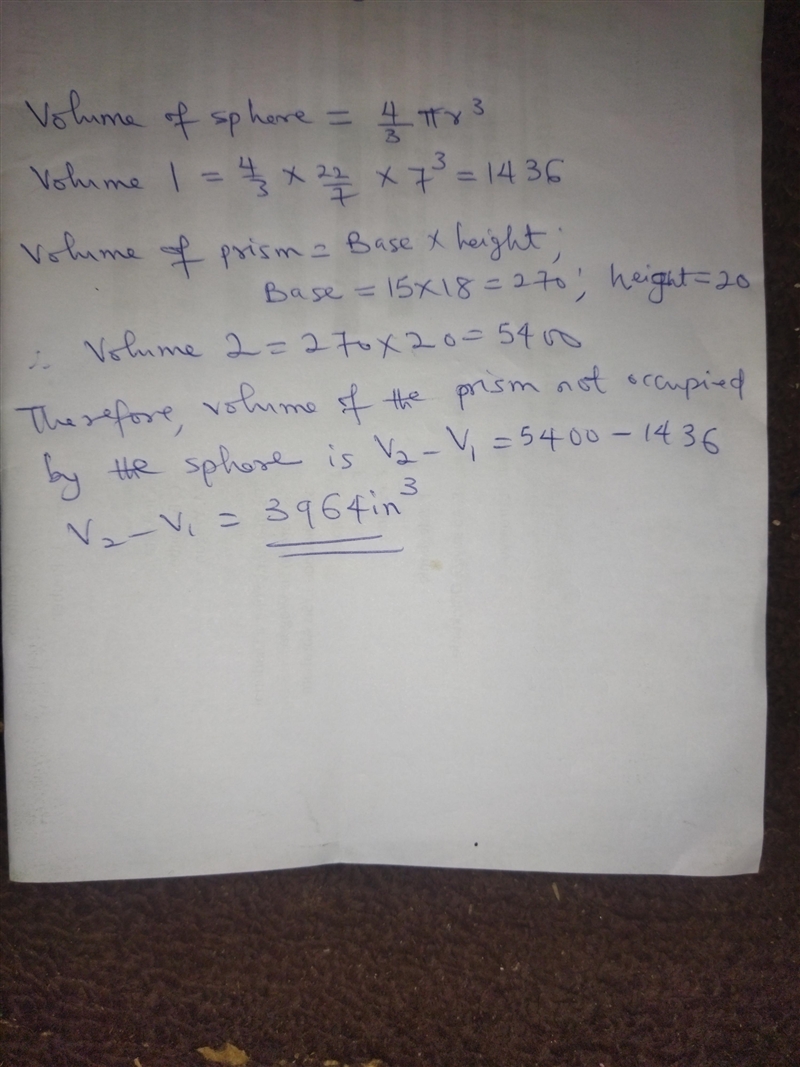 Volume of sphere = 4/3 πr³
Volume 1 = 4/3 × 22/7 × 7³ = 1436
Volume of prism = Base × height;
Base = 15×18 = 270; height = 20
∴ Volume 2 = 270 × 20 = 5400
Therefore, volume of the prism not occupied
by the sphere is V₂ – V₁ = 5400 – 1436
V₂ – V₁ = 3964in³